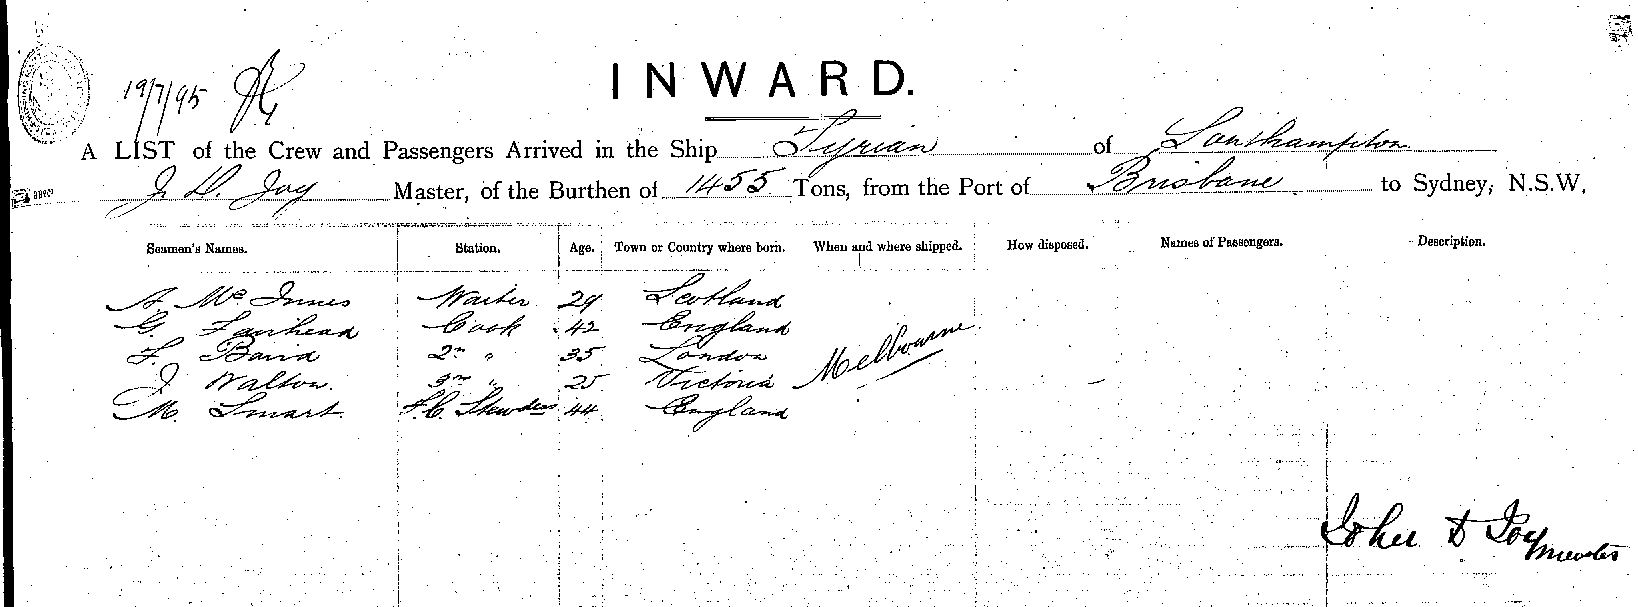 INWARD.
19/7/95
A LIST of the Crew and Passengers Arrived in the Ship Tyrian of Southampton
J. D. Joy Master, of the Burthen of 1455 Tons, from the Port of Brisbane to Sydney, N.S.W.
Seamen's Names. Station. Age. Town or Country where born. When and where shipped. How disposed. Names of Passengers. Description.
A Mc Innes Waiter 29 Scotland
G. Fairhead Cook 42 England
F. Baird 2nd " 35 London
J Walton. 3rd " 25 Victoria Melbourne
M. Smart F.C. Stewdess 44 England
John D Joy
Master